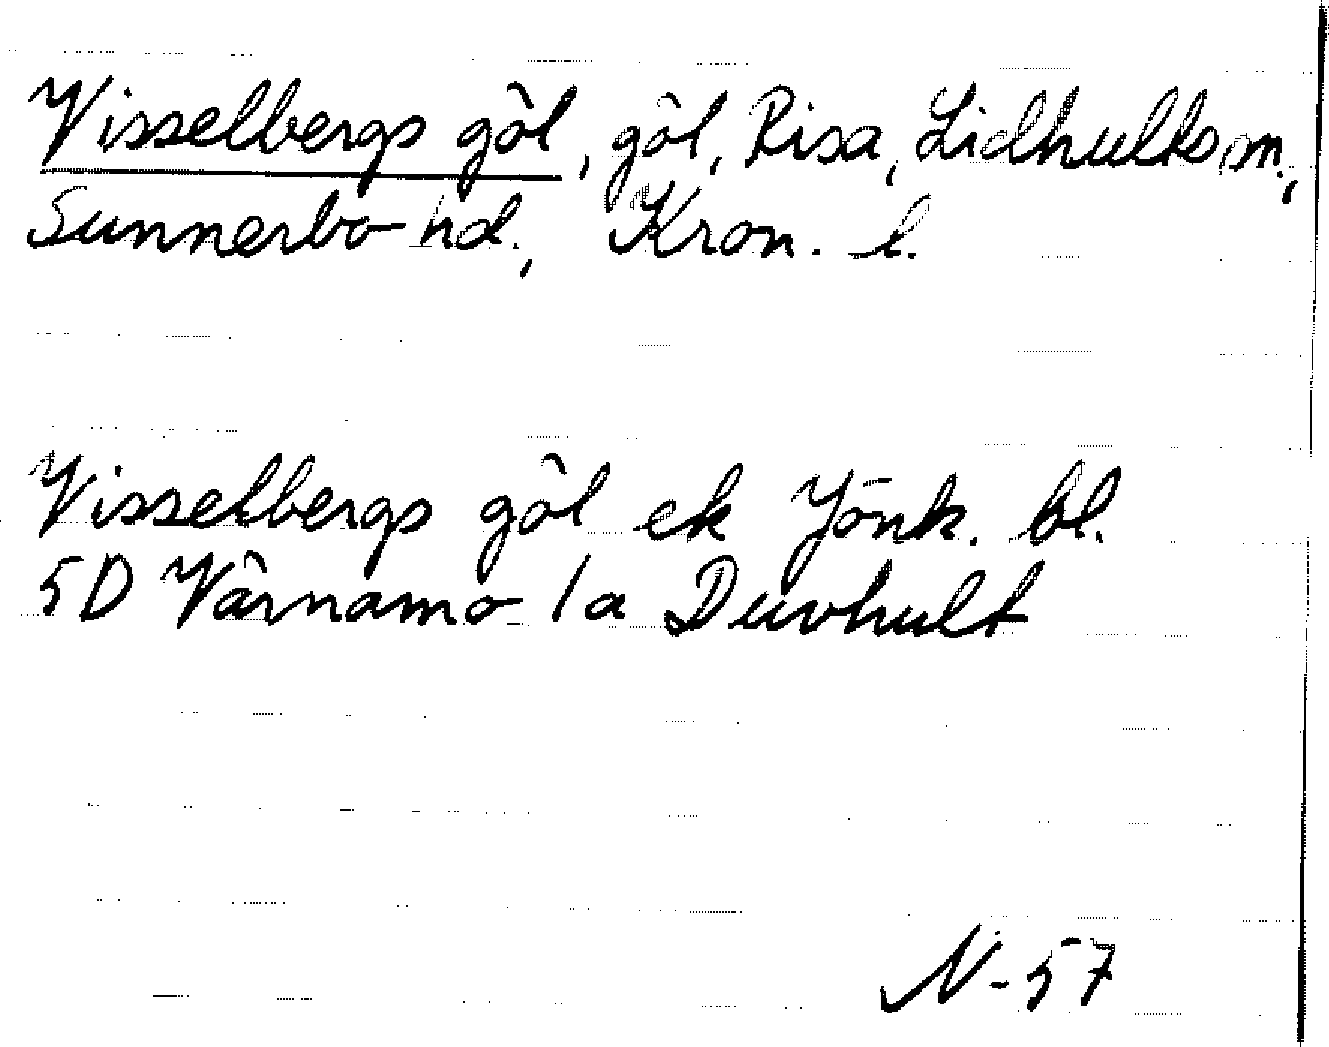 Visselbergs göl, göl, Risa, Lidhults sn.,
Sunnerbo hd., Kron. l.
Visselbergs göl ek Jönk. bl.
5D Värnamo 1a Duvhult
N-57